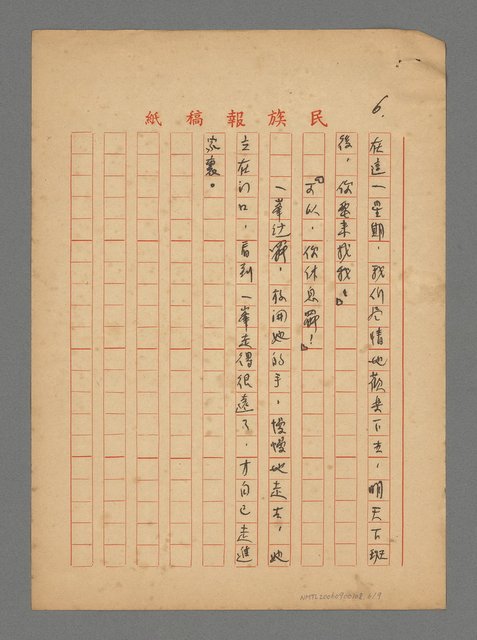 6.
民族報稿紙
在這一星期，我們尽情地歡樂下去，明天下班
後，你要來找我！』
『可以，你休息罷！』
一峯說罷，放開她的手，慢慢地走去，她
立在门口，看到一峯走得很遠了，才自己走進
家裏。
NMTL20060900108 6/9